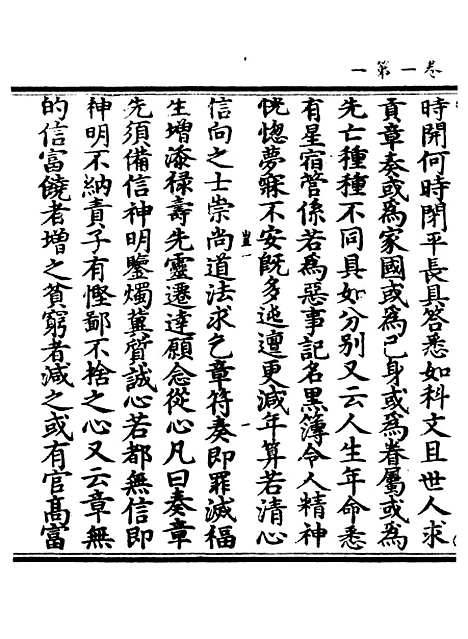 卷一第一
時開何時閉平長具答悉如科文且世人求
貢章奏或爲家國或爲己身或爲眷屬或爲
先亡種種不同具如分別又云人生年命悉
有星宿管係若爲惡事記名黑簿令人精神
恍惚夢寐不安旣多迍邅更減年筭若清心
豈一
信向之士崇尚道法求乞章符奏即罪滅福
生增添祿壽先靈遷達願念從心凡曰奏章
先須備信神明鑒燭蓋質誠心若都無信即
神明不納責子有慳鄙不捨之心又云章無
的信富饒者增之貧窮者減之或有官高富